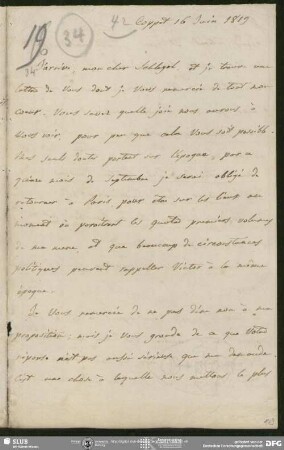 19
34
42
Coppet 16 Juin 1819
34.
J'arrive, mon cher Schlegel et je trouve une
lettre de vous dont je vous remercie de tout mon
coeur. Vous savez quelle joie nous aurons à
vous voir, pour peu que cela vous soit possible.
Mes seuls doutes portent sur l'époque, par
quinze mois de Septembre je serai obligé de
retourner à Paris pour être sur les lieux au
moment où paraîtront les quatre premiers volumes
de ma mère, et que beaucoup de circonstances
politiques peuvent rappeller Victor à la même
époque.
Je vous remercie de ne pas dire non à ma
proposition: mais je vous gronde de ce que votre
réponse n'est pas aussi sérieuse que ma demande.
C'est une chose à laquelle nous mettons le plus
SLUB
DFG